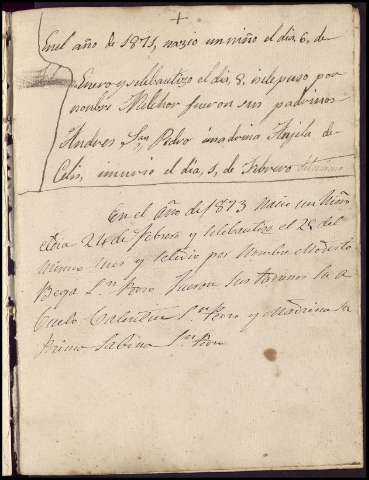 +
En el año de 1871, nazio un niño el dia, 6, de
Enero y selebautizo el dia, 8. iselepuso por
nonbre Melchor fueron sus padrinos
Andres Sn Pedro imadrina Anjela de
Celis, imurio el dia, 1, de Febrero
En el Año de 1873 Nacio un Niño
el dia 24 de febrero y selebautizo el 28 del
mismo mes y por Nombre Modesto
Bega Sn Pedro fueron sus
Valentin Sn Pedro y Madrina
Sabina Sn Pedro